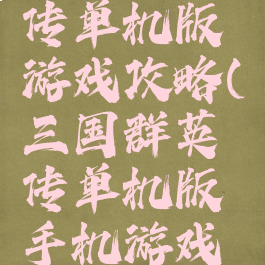 传单机版
游戏攻略(
三国群英
传单机版
手机游戏